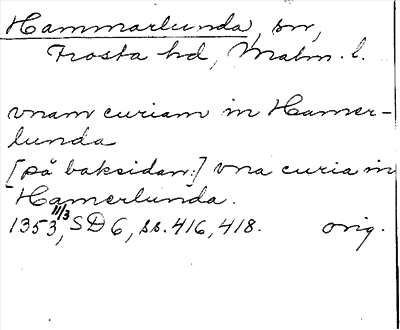 Hammarlunda, sn,
Frosta hd, Malm. l.
vnam curiam in Hamer-
lunda
[på baksidan:] vna curia in
Hamerlunda.
1353 11/3, SD 6, ss. 416, 418. orig.